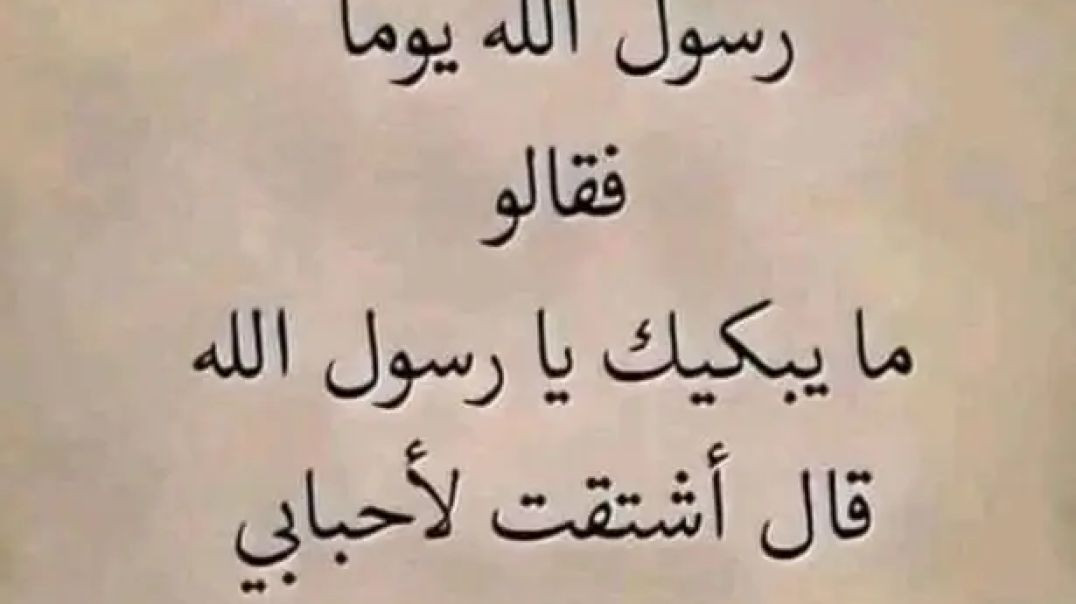 رسول الله يوما
فقالو
ما يبكيك يا رسول الله
قال أشتقت لأحبابي